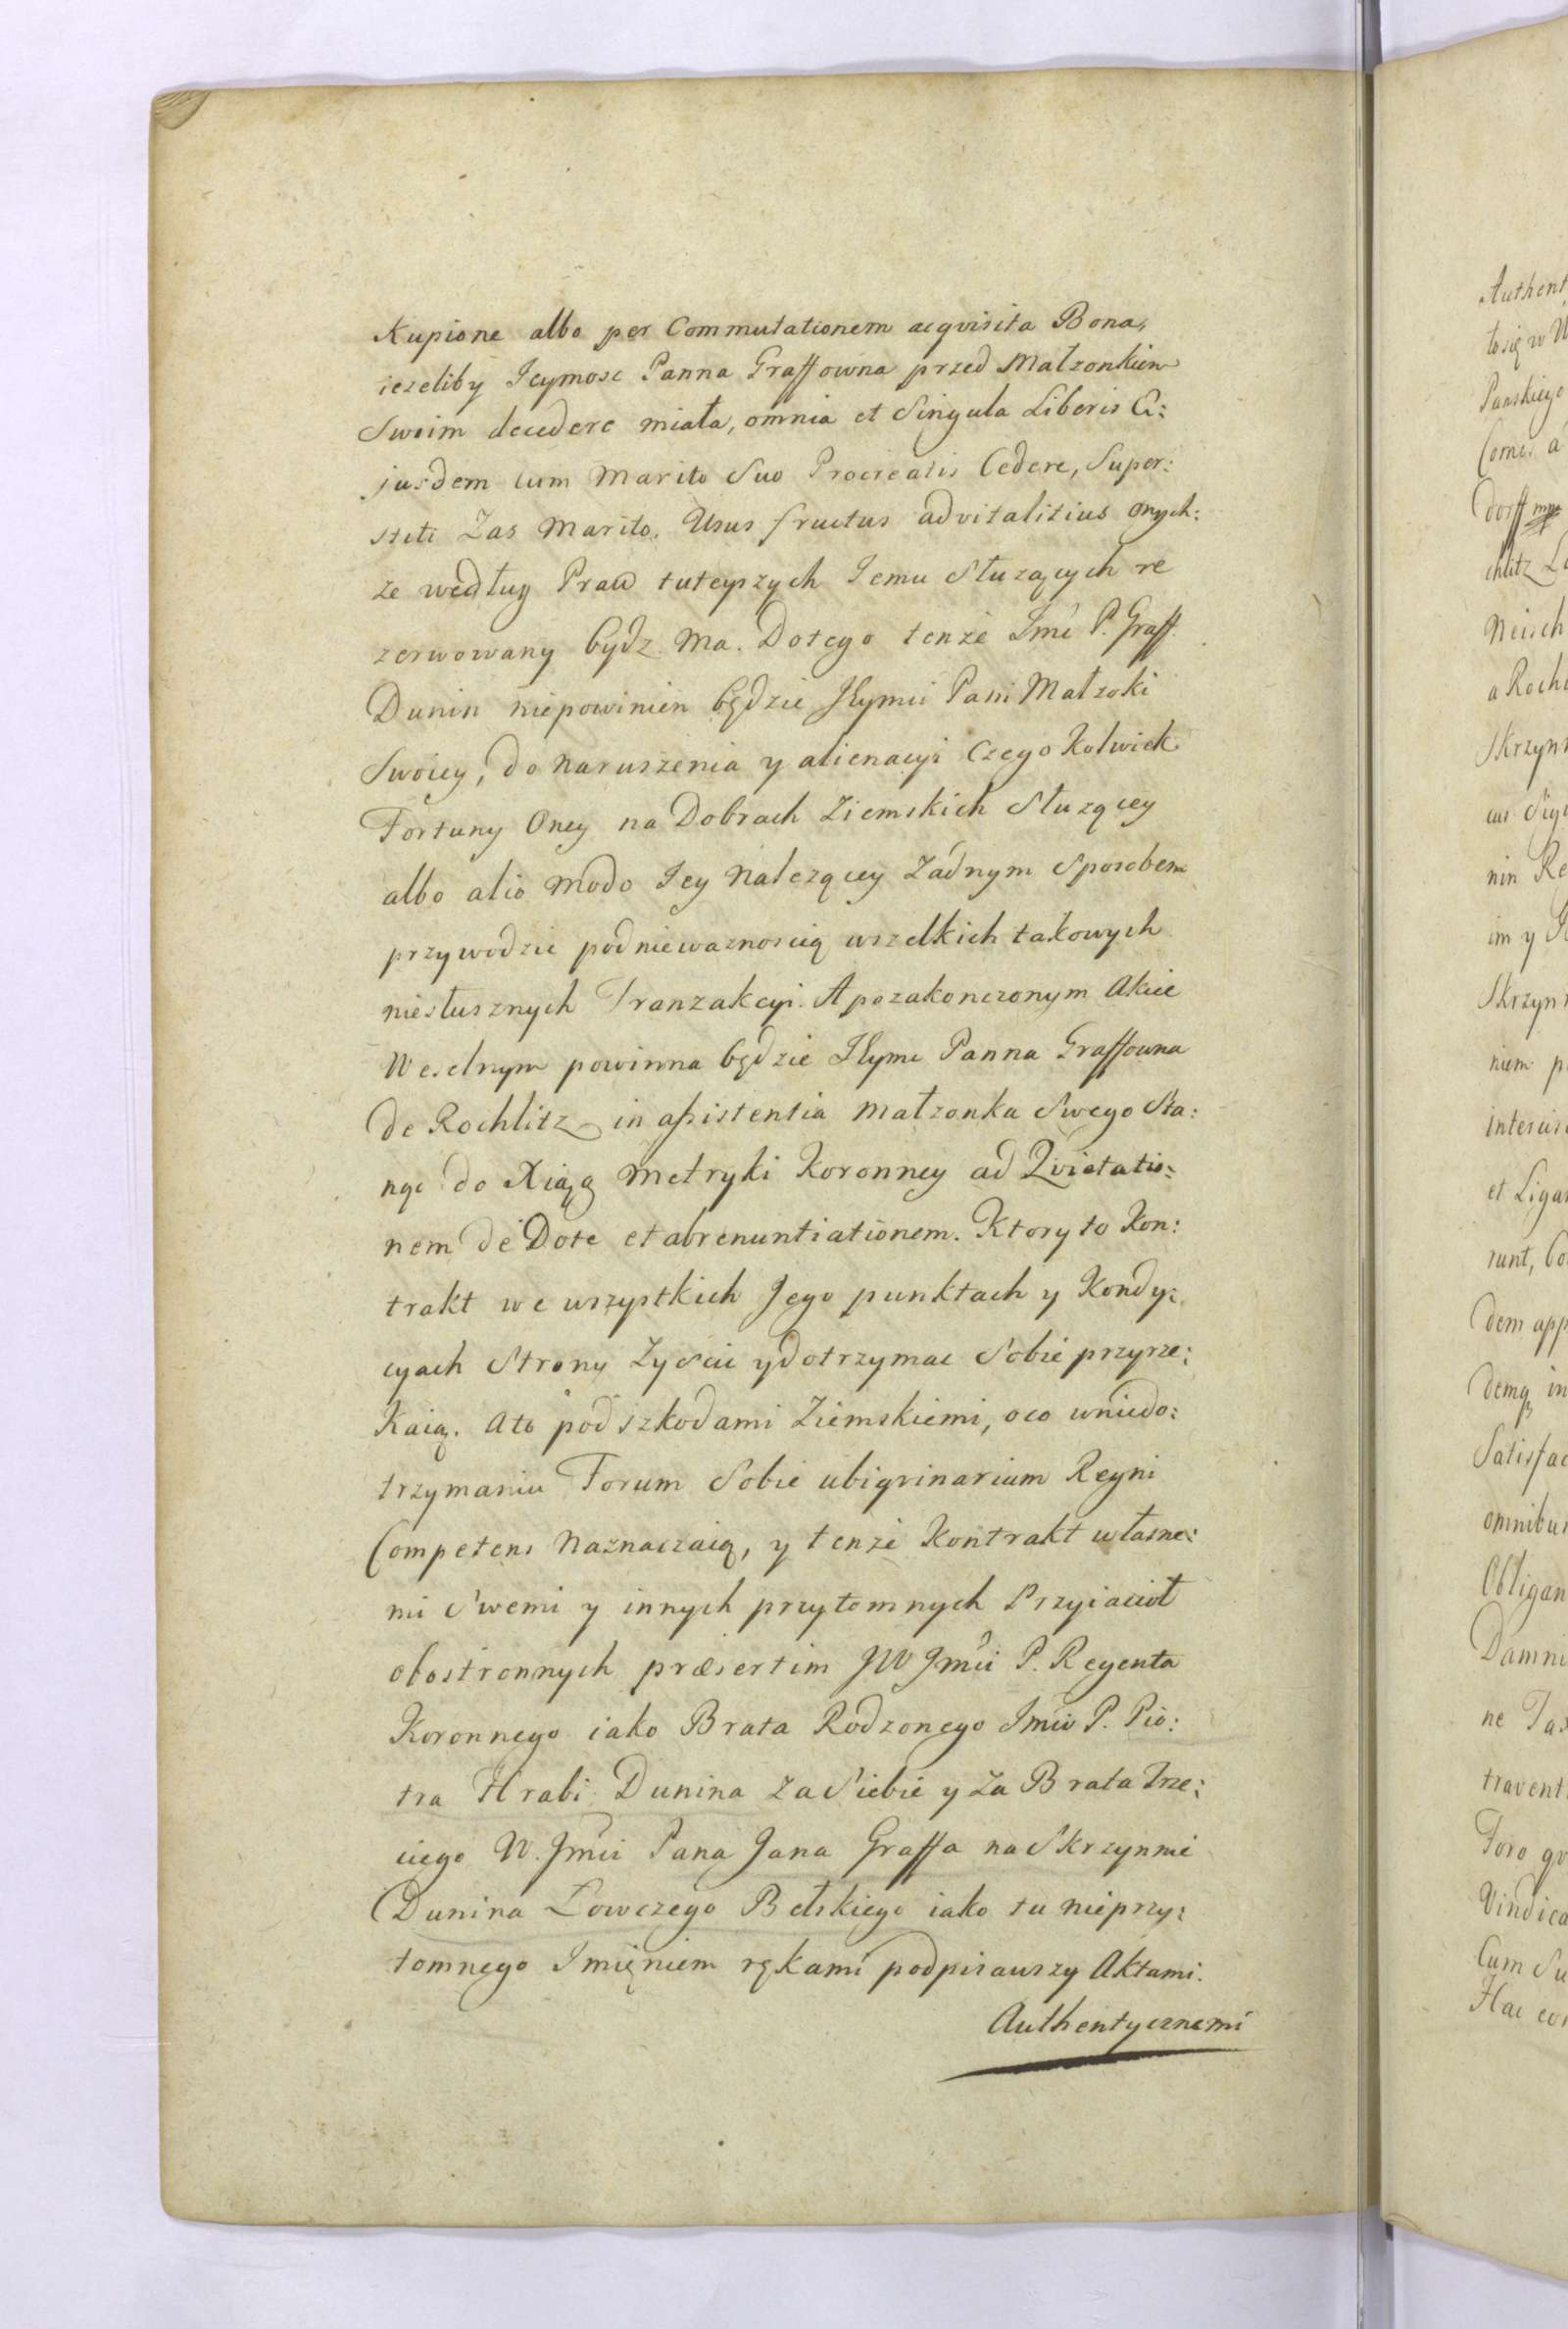 Kupione albo per Commutationem acqvisita Bona,
iezeliby Jeymosc Panna Graffowna przed Małzonkiem
Swoim decedere miała, omnia et Singula Liberis E:
jusdem cum Marito Suo Procreatis Cedere, Super:
stiti Zas Marito. Usus fructus advitalitius onych:
ze według Praw tuteyszych Jemu Słuzących re
zerwowany bydz Ma. Dotego tenze Jmć P. Graff
Dunin niepowinien będzie JEymci Pani Małzoki
Swoiey, do naruszenia y alienacyi Czego kolwiek
Fortuny Oney na Dobrach Ziemskich Słuzącey
albo alio modo Jey Nalezącey Zadnym Sposobem
przywodzic pod niewaznoscią wszelkich takowych
niesłusznych Tranzakcyi. A pozakonczonym Akcie
Weselnym powinna będzie JEymc Panna Graffowna
de Rochlitz in assistentia małzonka Swego Sta:
nąc do Xiąg Metryki Koronney ad Qvietatio:
nem de Dote et abrenuntiationem. Ktory to Kon:
trakt we wszystkich Jego punktach y Kondy:
cyach Strony Zyscic y dotrzymac Sobie przyrze:
kaią. Ato pod szkodami Ziemskiemi, oco wniedo:
trzymaniu Forum Sobie ubiqvinarium Regni
Competens Naznaczaią, y tenze Kontrakt własne:
mi Swemi y innych przytomnych Przyiacioł
obostronnych præsertim JW Jmći P. Regenta
Koronnego iako Brata Rodzonego Jmći P. Pio:
tra Hrabi Dunina Za Siebie y Za Brata Trze:
ciego W. Jmći Pana Jana Graffa na Skrzynnie
Dunina Łowczego Bełskiego iako tu nieprzy:
tomnego Jmięniem rękami podpisawszy Aktami.
Authentycznemi
Authent
to się w
Panskiego
Comes a
dorff mp
chlitz
Neisch
a Roch
Skrzyn
cus Sig
nin Re
im y
Skrzyn
niem p
intercis
et Liga
runt, Co
dem app
demq in
Satisfac
omnibus
Obligan
Damni
ne Tas
travent
Foro qv
Vindica
Cum Su
Hac con